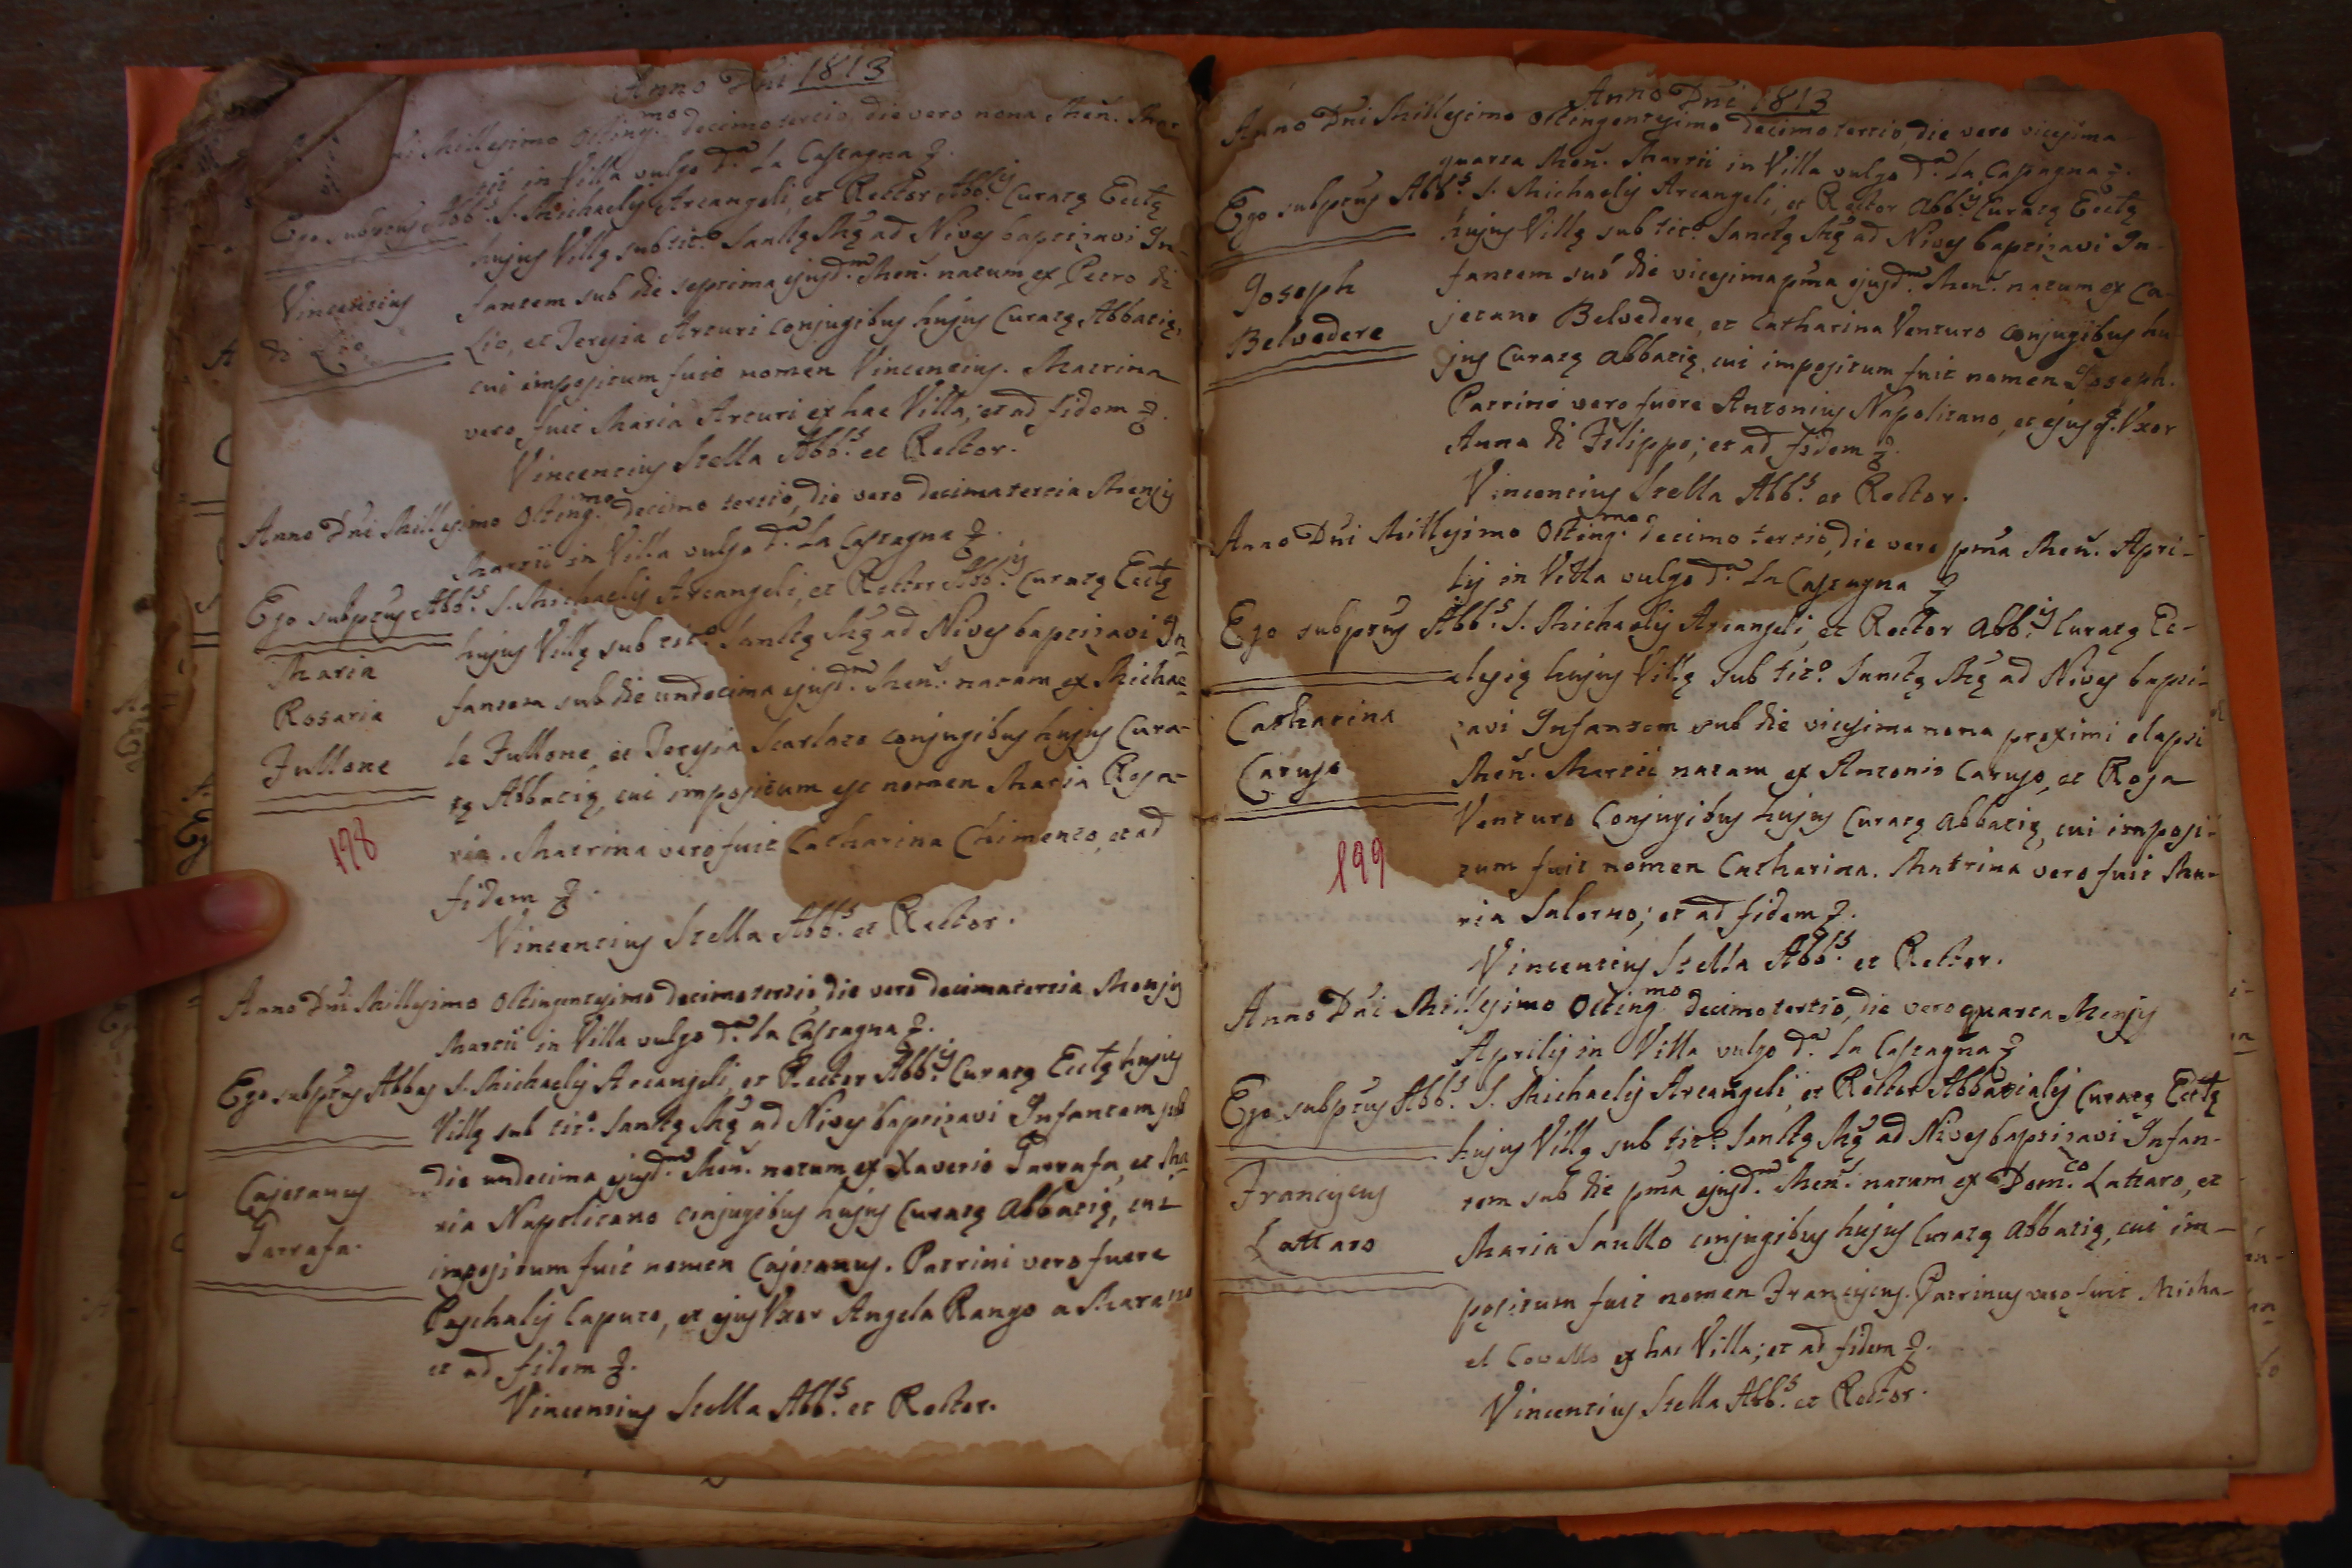 Anno Dni 1813
ni Millesimo Octing.mo decimo tertio, die vero nona Men. Mar
tii in Villa vulgo d.a La Castagna
Ego subptus Abb.s S. Michaelis Arcangeli, et Rector Abb.lis Curatę Ecclę
hujus Villę sub tit.o Sanctę Mę ad Nives baptizavi In-
Vincentius
di Lio
fantem sub die septima ejusd.m Men. natum ex Petro di
Lio, et Teresia Arturi conjugibus hujus Curatę Abbatię,
cui impositum fuit nomen Vincentius. Matrina
vero fuit Maria Arturi ex hac Villa; et ad fidem
Vincentius Stella Abb.s et Rector.
Anno Dni Millesimo Octing.mo decimo tertio, die vero decimatertia Mensis
Martii in Villa vulgo d.a La Castagna
Ego subptus Abb.s S. Michaelis Arcangeli, et Rector Abb.lis Curatę Ecclę
hujus Villę sub tit.o Sanctę Mę ad Nives baptizavi In
Maria
Rosaria
Fullone
fantem sub die undecima ejusd.m Men. natam ex Micha-
le Fullone, et Teresia Scarlato conjugibus hujus Cura-
tę Abbatię, cui impositum est nomen Maria Rosa-
ria. Matrina vero fuit Catharina Chimento, et ad
fidem
Vincentius Stella Abb.s et Rector.
198
Anno Dni Millesimo Octingentesimo decimotertio, die vero decimatertia Mensis
Martii in Villa vulgo d.a La Castagna
Ego subptus Abbas S. Michaelis Arcangeli, et Rector Abb.lis Curatę Ecclę hujus
Villę sub tit.o Sanctę Mę ad Nives baptizavi Infantem sub
Cajetanus
Garrafa.
die undecima ejusd.m Men. natum ex Xaverio Garrafa, et Ma
ria Napolitano conjugibus hujus Curatę Abbatię, cui
impositum fuit nomen Cajetanus. Patrini vero fuere
Paschalis Caputo, et ejus Uxor Angela Rango a Marano
et ad fidem
Vincentius Stella Abb.s et Rector.
Anno Dni 1813
Anno Dni Millesimo Octingentesimo decimotertio, die vero vicesima
quarta Men. Martii in Villa vulgo d.a La Castagna
Ego subptus Abb.s S. Michaelis Arcangeli, et Rector Abb.lis Curatę Ecclę
hujus Villę sub tit.o Sanctę Mę ad Nives baptizavi In-
Joseph
Belvedere
fantem sub die vicesimapma ejusd.m Men. natum ex Ca-
jetano Belvedere, et Catharina Venturo conjugibus hu
jus Curatę Abbatię, cui impositum fuit nomen Joseph.
Patrini vero fuere Antonius Napolitano, et ejus Uxor
Anna di Filippo; et ad fidem
Vincentius Stella Abb.s et Rector.
Anno Dni Millesimo Octing.mo decimo tertio, die vero pma Men. Apri-
lis in Villa vulgo d.a La Castagna
Ego subptus Abb.s S. Michaelis Arcangeli, et Rector Abb.lis Curatę Ec-
clesię hujus Villę sub tit.o Sanctę Mę ad Nives bapti-
Catharina
Caruso
zavi Infantem sub die vicesima nona proximi elapsi
Men. Martii natam ex Antonio Caruso, et Rosa
Venturo Conjugibus hujus Curatę Abbatię, cui imposi-
tum fuit nomen Catharina. Matrina vero fuit Ma-
ria Salerno; et ad fidem
Vincentius Stella Abb.s et Rector.
199
Anno Dni Millesimo Octing.mo decimotertio, die vero quarta Mensis
Aprilis in Villa vulgo d.a La Castagna
Ego subptus Abb.s S. Michaelis Arcangeli, et Rector Abbatialis Curatę Ecclę
hujus Villę sub tit.o Sanctę Mę ad Nives baptizavi Infan-
Franciscus
Lattaro
tem sub die pma ejusd.m Men. natum ex Dom.co Lattaro, et
Maria Saullo conjugibus hujus Curatę Abbatię, cui im-
positum fuit nomen Franciscus. Patrinus vero fuit Micha-
el Covello ex hac Villa; et ad fidem
Vincentius Stella Abb.s et Rector.